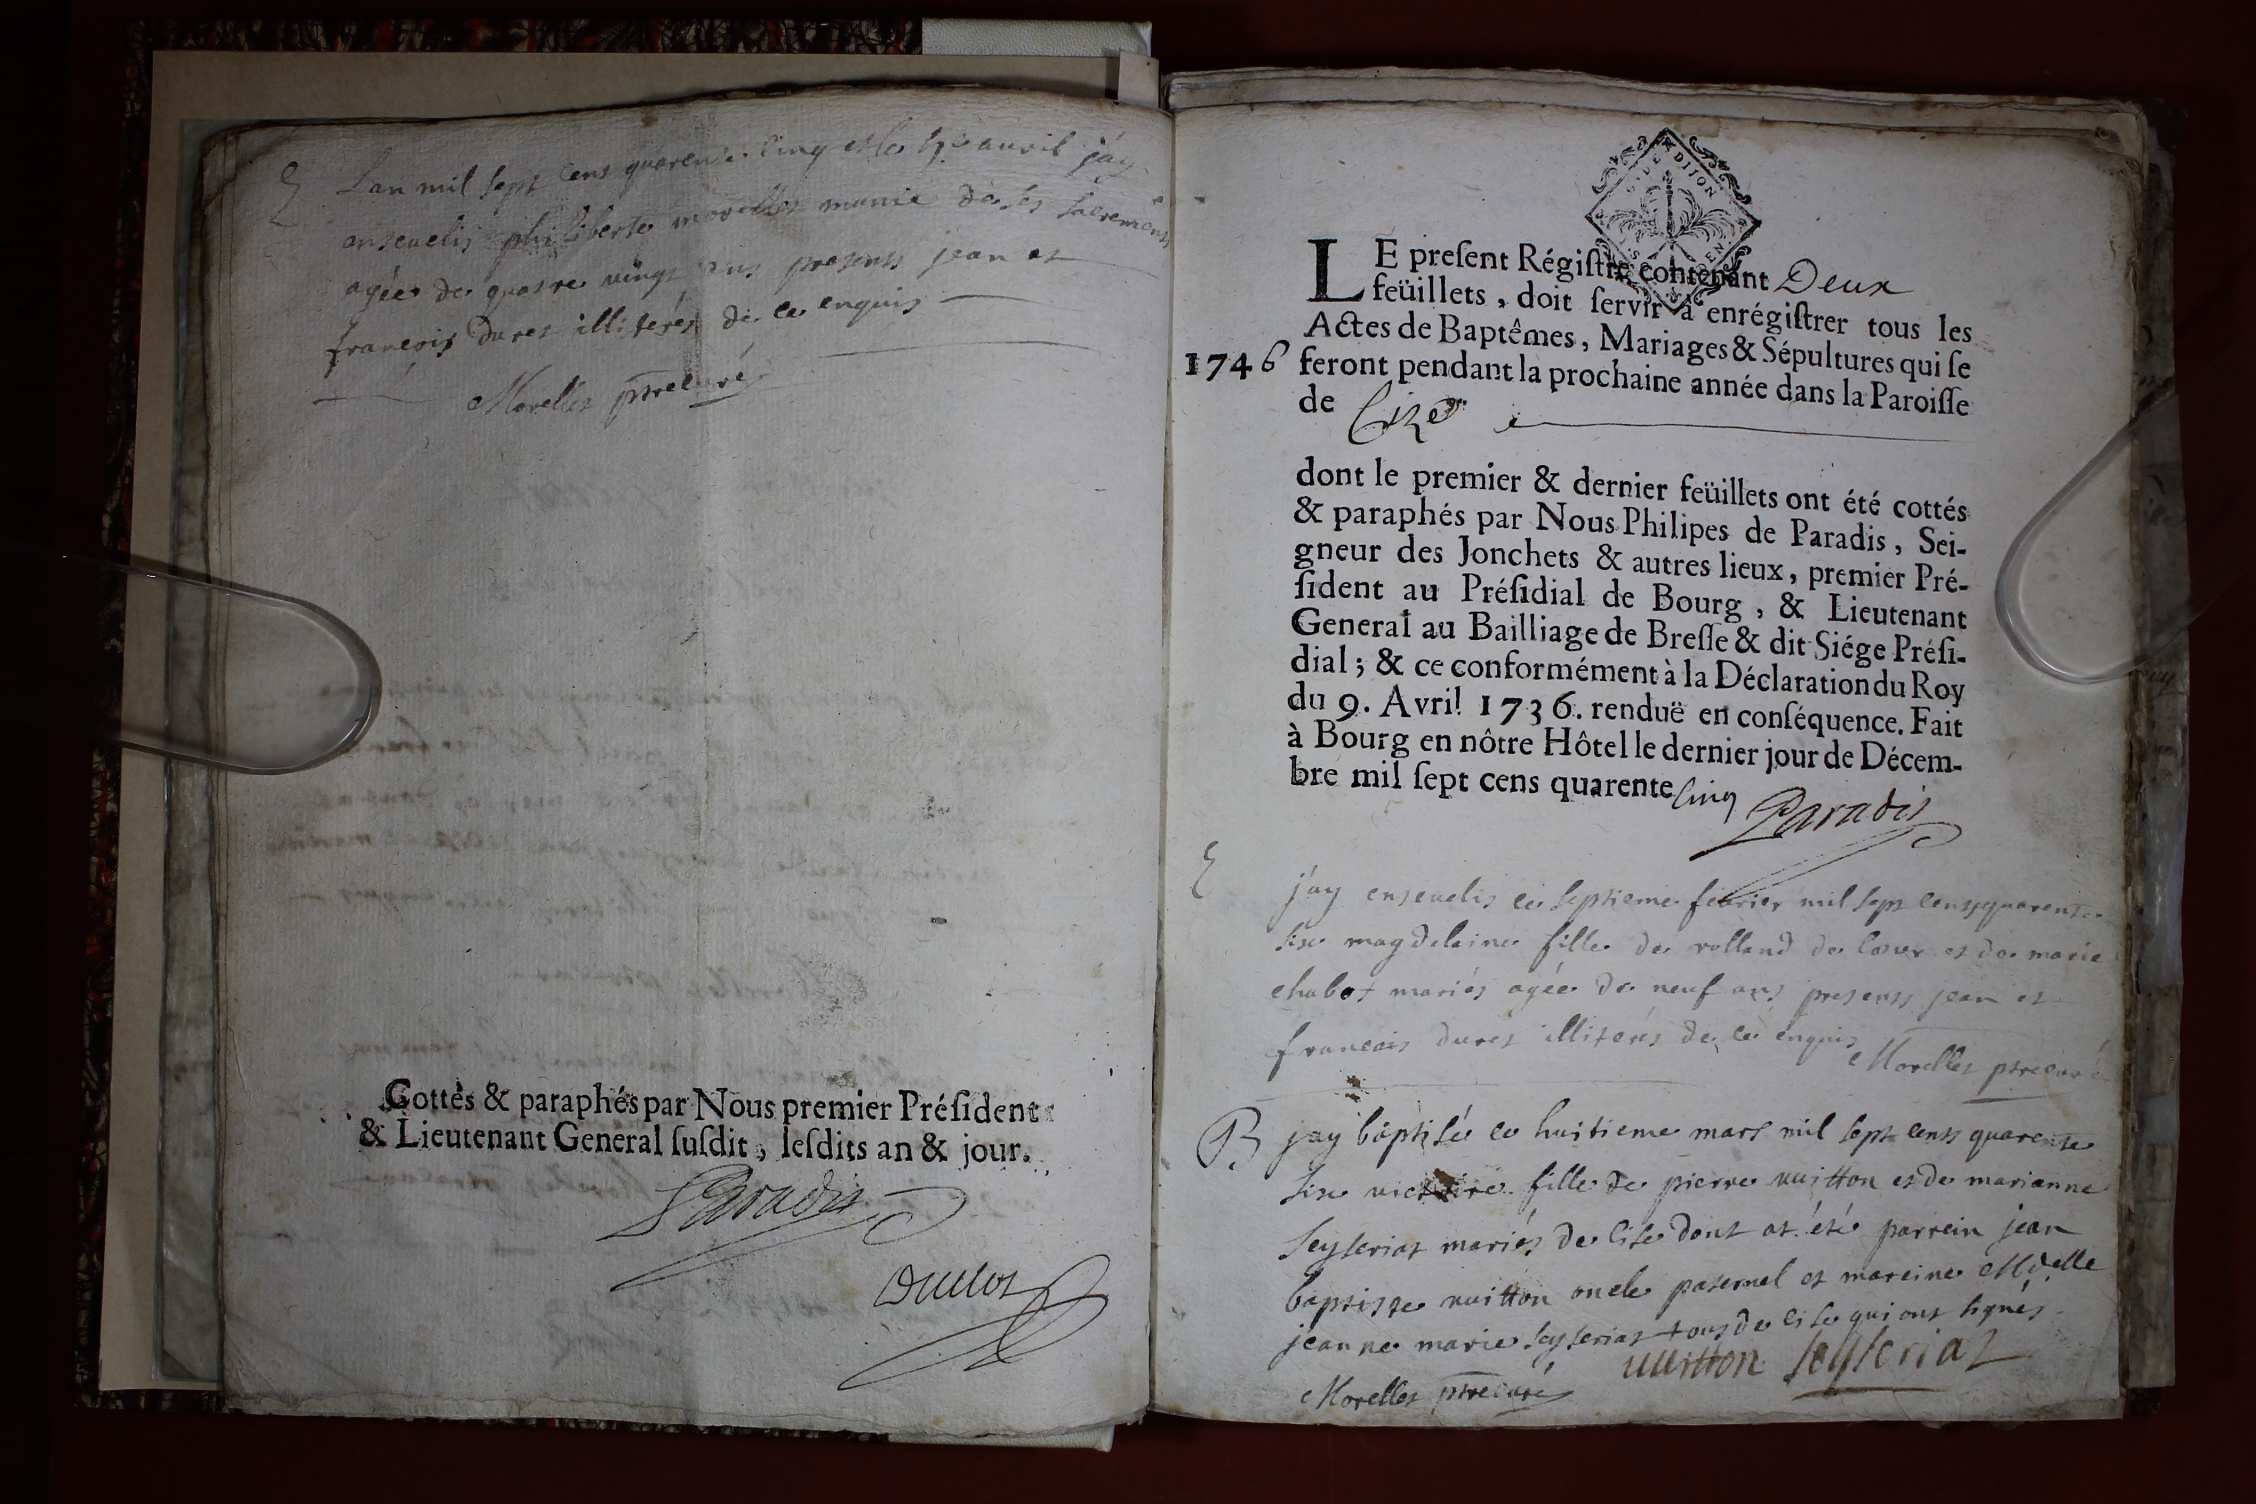 E
L'an mil sept cens quarente cinq et le avril j'ay
ensevelis philiberte morellet munie de sés sacrements
agée de quatre vingt ans presents jean et
francois Duret illiterés de ce enquis
Morellet ptre curé
Cottés & paraphés par Nous premier Préſident
& Lieutenant General ſuſdit, leſdits an & jour.
Paradis
Duclos
DIJON
LE preſent Régiſtre contenant Deux
feüillets, doit ſervir à enrégiſtrer tous les
Actes de Baptêmes, Mariages & Sépultures qui ſe
1746 feront pendant la prochaine année dans la Paroiſſe
de Cize
dont le premier & dernier feüillets ont été cottés
& paraphés par Nous Philipes de Paradis, Sei-
gneur des Jonchets & autres lieux, premier Pré-
ſident au Préſidial de Bourg, & Lieutenant
General au Bailliage de Breſſe & dit Siége Préſi-
dial; & ce conformément à la Déclaration du Roy
du 9. Avril 1736. renduë en conſéquence. Fait
à Bourg en nôtre Hôtel le dernier jour de Décem-
bre mil ſept cens quarente cinq
Paradis
E
j'ay ensevelis ce septieme fevrier mil sept cens quarente
six magdelaine fille de rolland de et de marie
chabot mariés agée de neuf ans presents jean et
francois duret illiterés de ce enquis
Morellet ptre curé
B
j'ay baptisée ce huitieme mars mil sept cents quarente
six victoire fille de pierre vuitton et de marianne
seyseriat mariés de cise dont at été parrein jean
baptiste vuitton oncle paternel et mareine Mdelle
jeanne marie seyseriat tous de cise qui ont signés
vuitton seyseriat
Morellet ptre curé